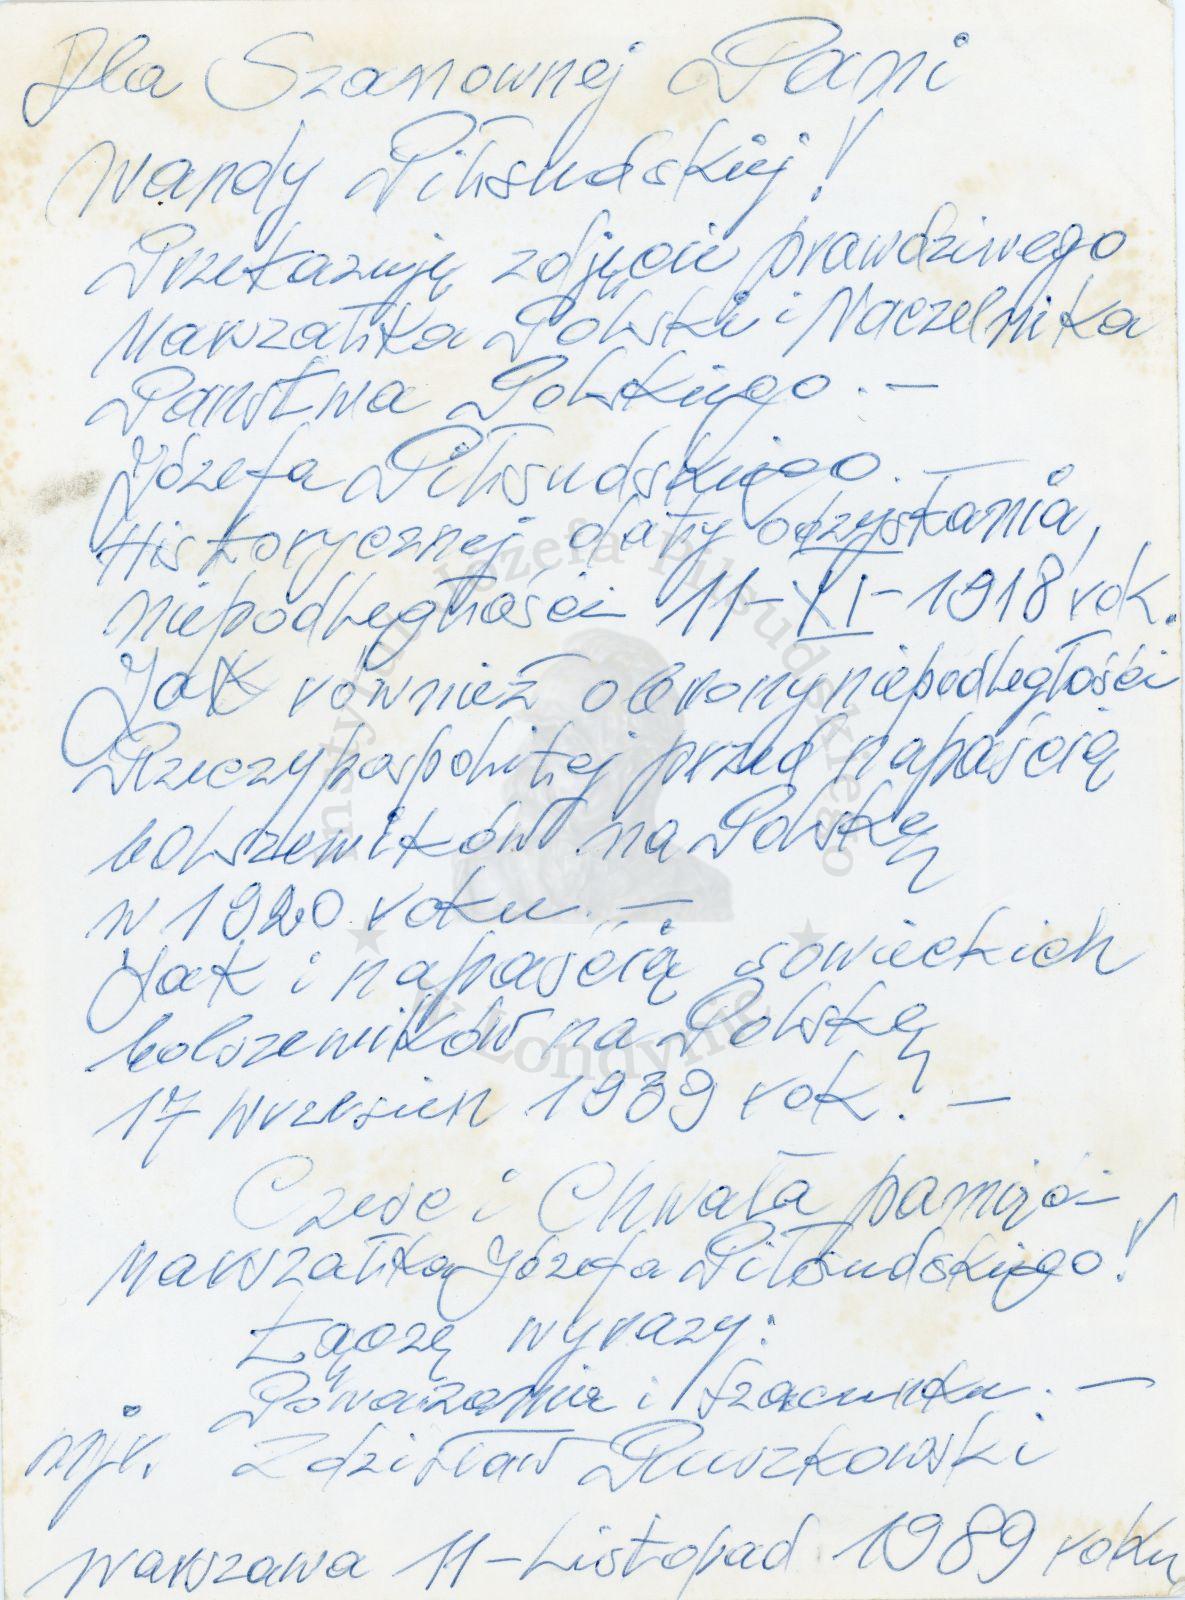 Dla Szanownej Pani
Wandy Piłsudskiej!
Przekazuję zdjęcie prawdziwego
Marszałka Polski i Naczelnika
Państwa Polskiego. —
Józefa Piłsudskiego. —
Historycznej daty odzyskania,
niepodległości 11-XI-1918 rok.
Jak również obrony niepodległości
Rzeczypospolitej przed napaścią
bolszewików na Polskę
w 1920 roku. —
Jak i napaścią sowieckich
bolszewików na Polskę
17 wrzesień 1939 rok. —
Cześć i Chwała pamięci
Marszałka Józefa Piłsudskiego!
Łączę wyrazy:
Poważania i szacunku. —
mjr. Zdzisław Puszkowski
Warszawa 11-Listopad 1989 roku
Instytut Józefa Piłsudskiego
w Londynie